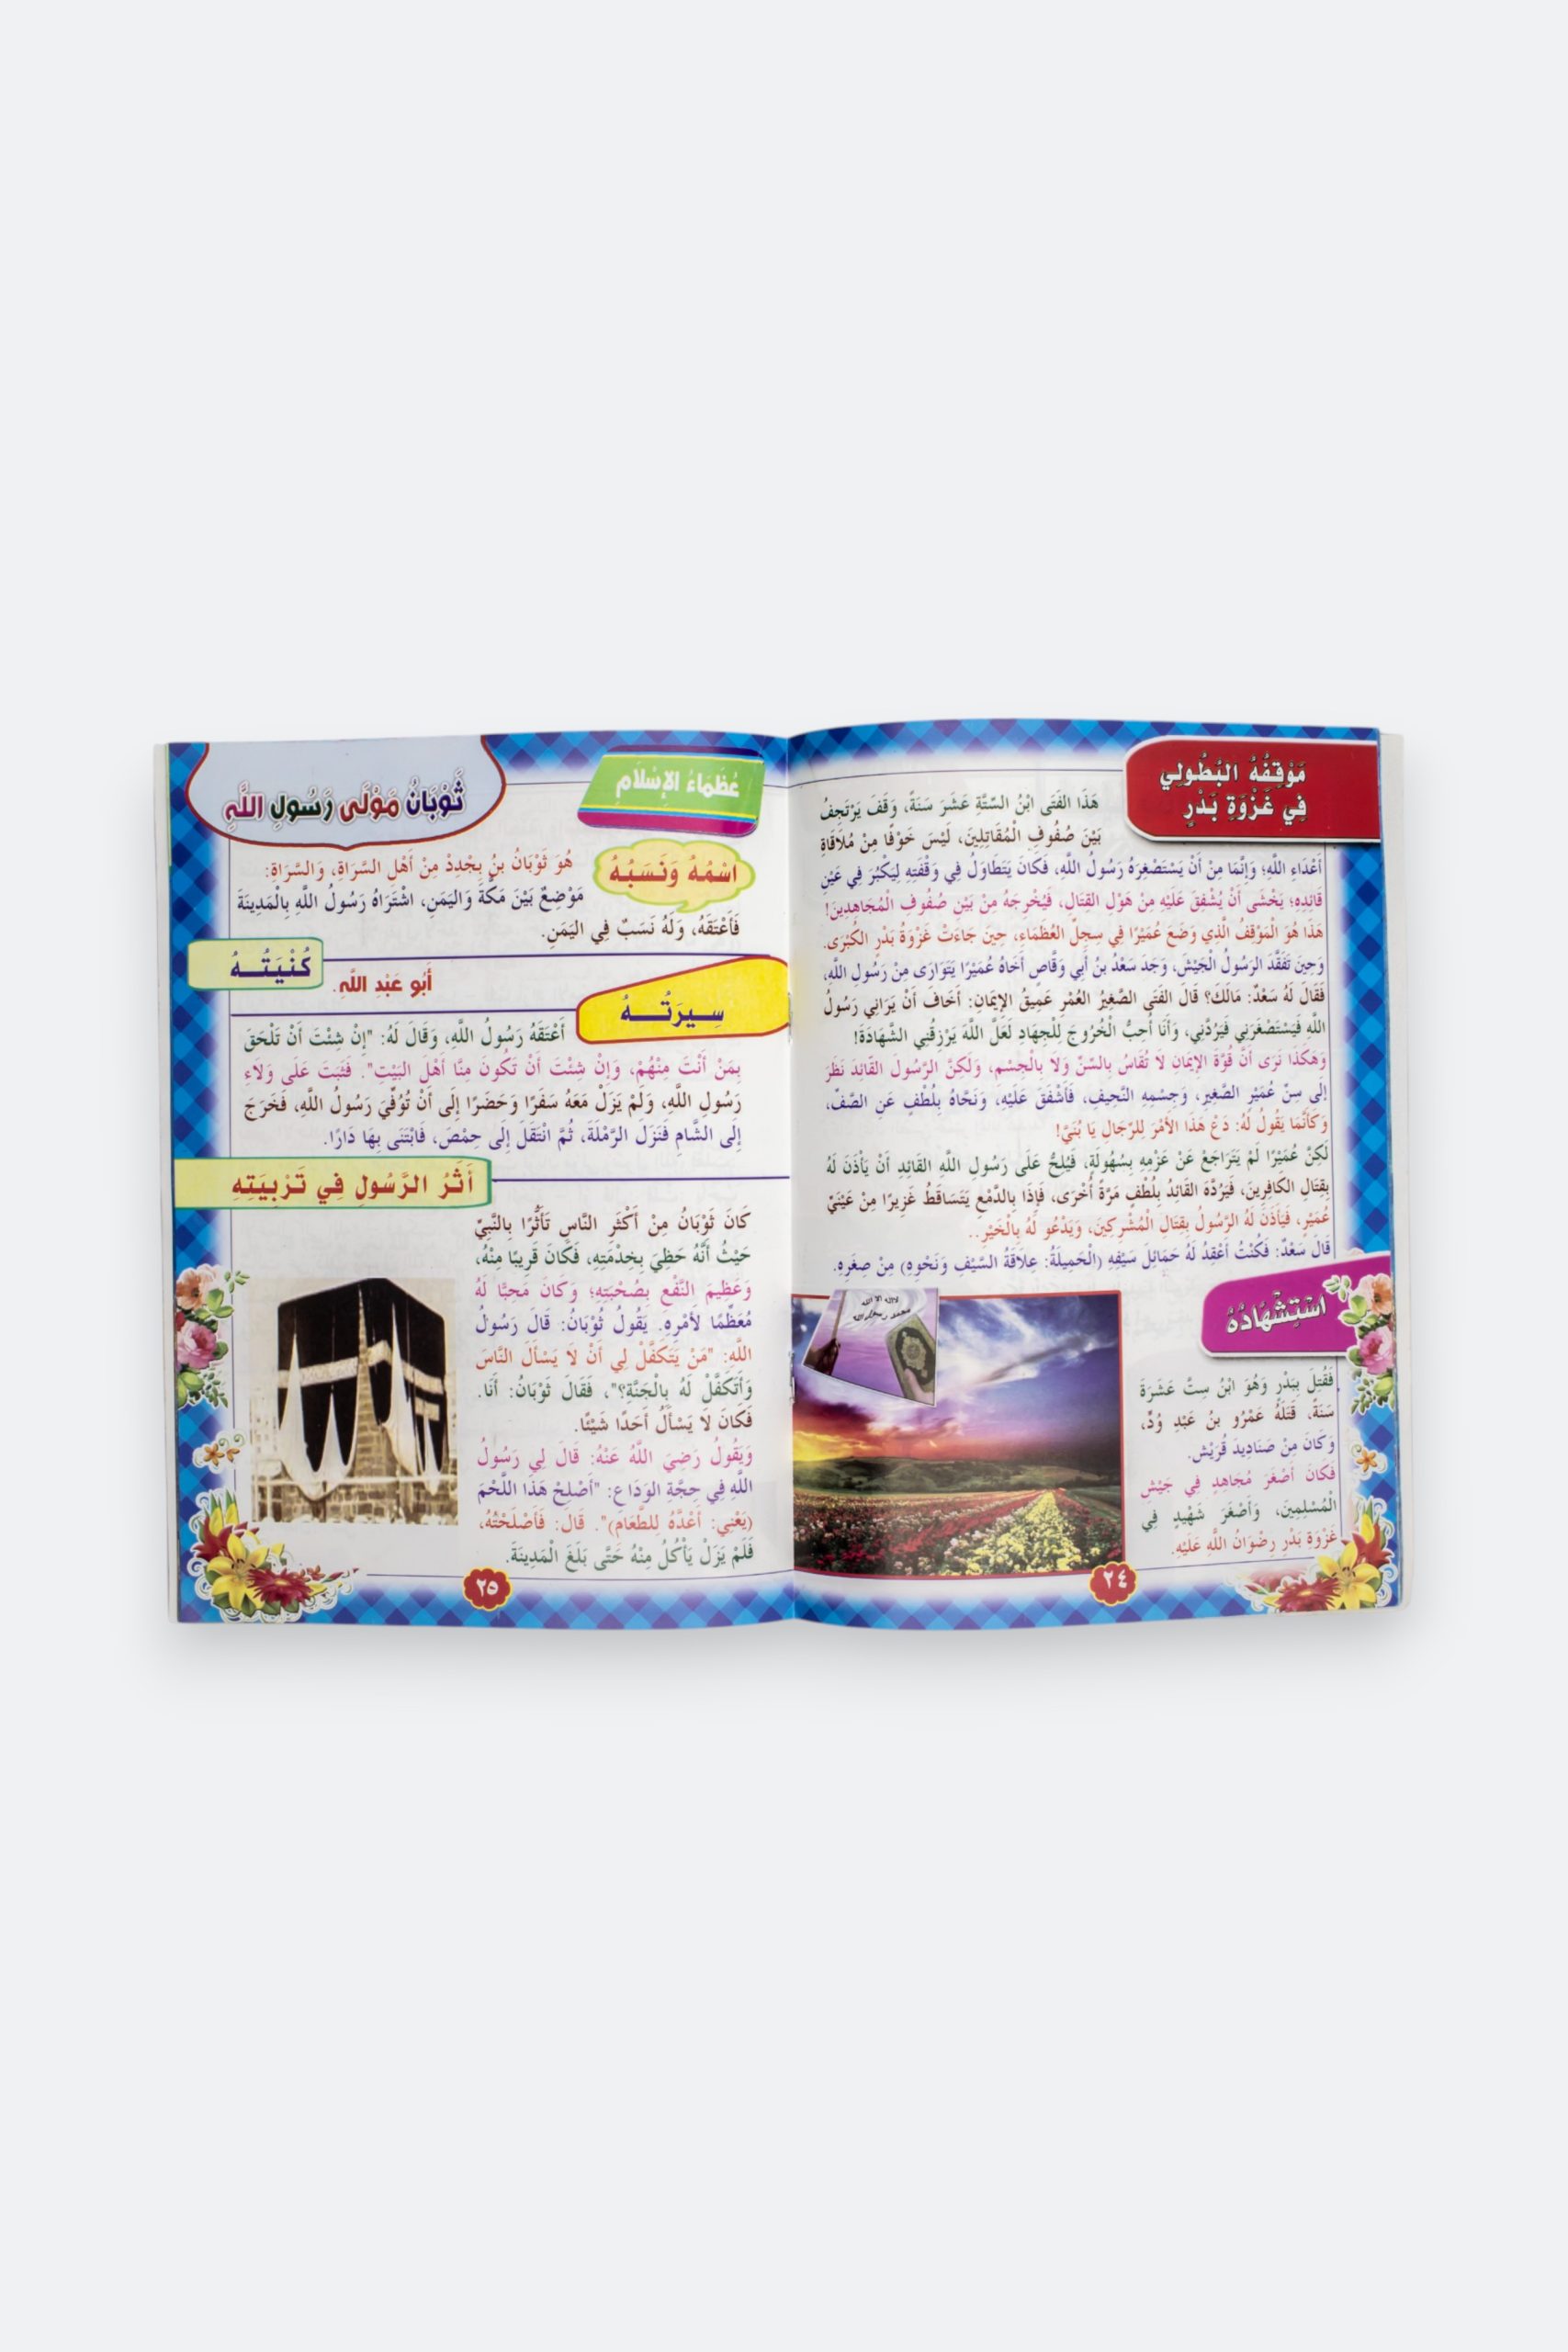 مَوْقِفُهُ البُطُولِي
فِي غَزْوَةِ بَدْرٍ
هَذَا الفَتَى ابْنُ السِّتَّةِ عَشَرَ سَنَةً، وَقَفَ يَرْتَجِفُ
بَيْنَ صُفُوفِ الْمُقَاتِلِينَ، لَيْسَ خَوْفًا مِنْ مُلَاقَاةِ
أَعْدَاءِ اللَّهِ؛ وَإِنَّمَا مِنْ أَنْ يَسْتَصْغِرَهُ رَسُولُ اللَّهِ، فَكَانَ يَتَطَاوَلُ فِي وَقْفَتِهِ لِيَكْبُرَ فِي عَيْنِ
قَائِدِهِ؛ يَخْشَى أَنْ يُشْفِقَ عَلَيْهِ مِنْ هَوْلِ القِتَالِ، فَيُخْرِجَهُ مِنْ بَيْنِ صُفُوفِ المُجَاهِدِينَ!
هَذَا هُوَ الْمَوْقِفُ الَّذِي وَضَعَ عُمَيْرًا فِي سِجِلِّ العُظَمَاءِ، حِينَ جَاءَتْ غَزْوَةُ بَدْرٍ الكُبْرَى.
وَحِينَ تَفَقَّدَ الرَسُولُ الْجَيْشَ، وَجَدَ سَعْدُ بنُ أَبِي وَقَّاصٍ أَخَاهُ عُمَيْرًا يَتَوَارَى مِنْ رَسُولِ اللَّهِ،
فَقَالَ لَهُ سَعْدٌ: مَالَكَ؟ قَالَ الفَتَى الصَّغِيرُ العُمْرِ عَمِيقُ الإِيمَانِ: أَخَافُ أَنْ يَرَانِي رَسُولُ
اللَّهِ فَيَسْتَصْغِرَنِي فَيَرُدَّنِي، وَأَنَا أُحِبُّ الْخُرُوجَ لِلْجِهَادِ لَعَلَّ اللَّهَ يَرْزِقُنِي الشَّهَادَةَ!
وَهَكَذَا نَرَى أَنَّ قُوَّةَ الإِيمَانِ لَا تُقَاسُ بِالسِّنِّ وَلَا بِالْجِسْمِ، وَلَكِنَّ الرَّسُولَ القَائِدَ نَظَرَ
إِلَى سِنِّ عُمَيْرٍ الصَّغِيرِ، وَجِسْمِهِ النَّحِيفِ، فَأَشْفَقَ عَلَيْهِ، وَنَحَّاهُ بِلُطْفٍ عَنِ الصَّفِّ،
وَكَأَنَّمَا يَقُولُ لَهُ: دَعْ هَذَا الأَمْرَ لِلرِّجَالِ يَا بُنَيَّ!
لَكِنَّ عُمَيْرًا لَمْ يَتَرَاجَعْ عَنْ عَزْمِهِ بِسُهُولَةٍ، فَيُلِحُّ عَلَى رَسُولِ اللَّهِ القَائِدِ أَنْ يَأْذَنَ لَهُ
بِقِتَالِ الكَافِرِينَ، فَيَرُدُّهُ القَائِدُ بِلُطْفٍ مَرَّةً أُخْرَى، فَإِذَا بِالدَّمْعِ يَتَسَاقَطُ غَزِيرًا مِنْ عَيْنَيِّ
عُمَيْرٍ، فَيَأْذَنَ لَهُ الرَّسُولُ بِقِتَالِ الْمُشْرِكِينَ، وَيَدْعُو لَهُ بِالْخَيْرِ..
قَالَ سَعْدٌ: فَكُنْتُ أَعْقِدُ لَهُ حَمَائِلَ سَيْفِهِ (الْحَمِيلَةُ: عِلَاقَةُ السَّيْفِ وَنَحْوِهِ) مِنْ صِغَرِهِ.
اسْتِشْهَادُهُ
فَقُتِلَ بِبَدْرٍ وَهُوَ ابْنُ سِتَّ عَشَرَةَ
سَنَةً، قَتَلَهُ عَمْرُو بنُ عَبْدِ وُدٍّ،
وَكَانَ مِنْ صَنَادِيدَ قُرَيْشٍ.
فَكَانَ أَصْغَرَ مُجَاهِدٍ فِي جَيْشِ
الْمُسْلِمِينَ، وَأَصْغَرَ شَهْيِدٍ فِي
غَزْوَةِ بَدْرٍ رِضْوَانُ اللَّهِ عَلَيْهِ.
لا إله إلا الله
محمد رسول الله
٢٤
عُظَمَاءُ الإِسْلَامِ
ثَوْبَانُ مَوْلَى رَسُولِ اللَّهِ
اسْمُهُ وَنَسَبُهُ
هُوَ ثَوْبَانُ بنُ بِجْدِدْ مِنْ أَهْلِ السَّرَاةِ، وَالسَّرَاةِ:
مَوْضِعٌ بَيْنَ مَكَّةَ وَاليَمَنِ، اشْتَرَاهُ رَسُولُ اللَّهِ بِالْمَدِينَةَ
فَأَعْتَقَهُ، وَلَهُ نَسَبٌ فِي اليَمَنِ.
كُنْيَتُـــهُ
أَبُو عَبْدِ اللَّهِ.
سِــيرَتُــــهُ
أَعْتَقَهُ رَسُولُ اللَّهِ، وَقَالَ لَهُ: "إِنْ شِئْتَ أَنْ تَلْحَقَ
بِمَنْ أَنْتَ مِنْهُمْ، وَإِنْ شِئْتَ أَنْ تَكُونَ مِنَّا أَهْلِ البَيْتِ". فَثَبَتَ عَلَى وَلَاءِ
رَسُولِ اللَّهِ، وَلَمْ يَزَلْ مَعَهُ سَفَرًا وَحَضَرًا إِلَى أَنْ تُوُفِّيَ رَسُولُ اللَّهِ، فَخَرَجَ
إِلَى الشَّامِ فَنَزَلَ الرَّمْلَةَ، ثُمَّ انْتَقَلَ إِلَى حِمْصَ، فَابْتَنَى بِهَا دَارًا.
أَثَرُ الرَّسُولِ فِي تَرْبِيَتِهِ
كَانَ ثَوْبَانُ مِنْ أَكْثَرِ النَّاسِ تَأَثُّرًا بِالنَّبِيِّ
حَيْثُ أَنَّهُ حَظِيَ بِخِدْمَتِهِ، فَكَانَ قَرِيبًا مِنْهُ،
وَعَظِيمَ النَّفْعِ بِصُحْبَتِهِ؛ وَكَانَ مَحِبًّا لَهُ
مُعَظِّمًا لأَمْرِهِ. يَقُولُ ثُوْبَانُ: قَالَ رَسُولُ
اللَّهِ: "مَنْ يَتَكَفَّلْ لِي أَنْ لَا يَسْأَلَ النَّاسَ
وَأَتَكَفَّلْ لَهُ بِالْجَنَّةِ؟"، فَقَالَ ثَوْبَانُ: أَنَا.
فَكَانَ لَا يَسْأَلُ أَحَدًا شَيْئًا.
وَيَقُولُ رَضِيَ اللَّهُ عَنْهُ: قَالَ لِي رَسُولُ
اللَّهِ فِي حِجَّةِ الوَدَاعِ: "أَصْلِحْ هَذَا اللَّحْمَ
(يَعْنِي: أَعْدَّهُ لِلطَّعَامِ)". قَالَ: فَأَصْلَحْتُهُ،
فَلَمْ يَزَلْ يَأْكُلُ مِنْهُ حَتَّى بَلَغَ الْمَدِينَةَ.
٢٥